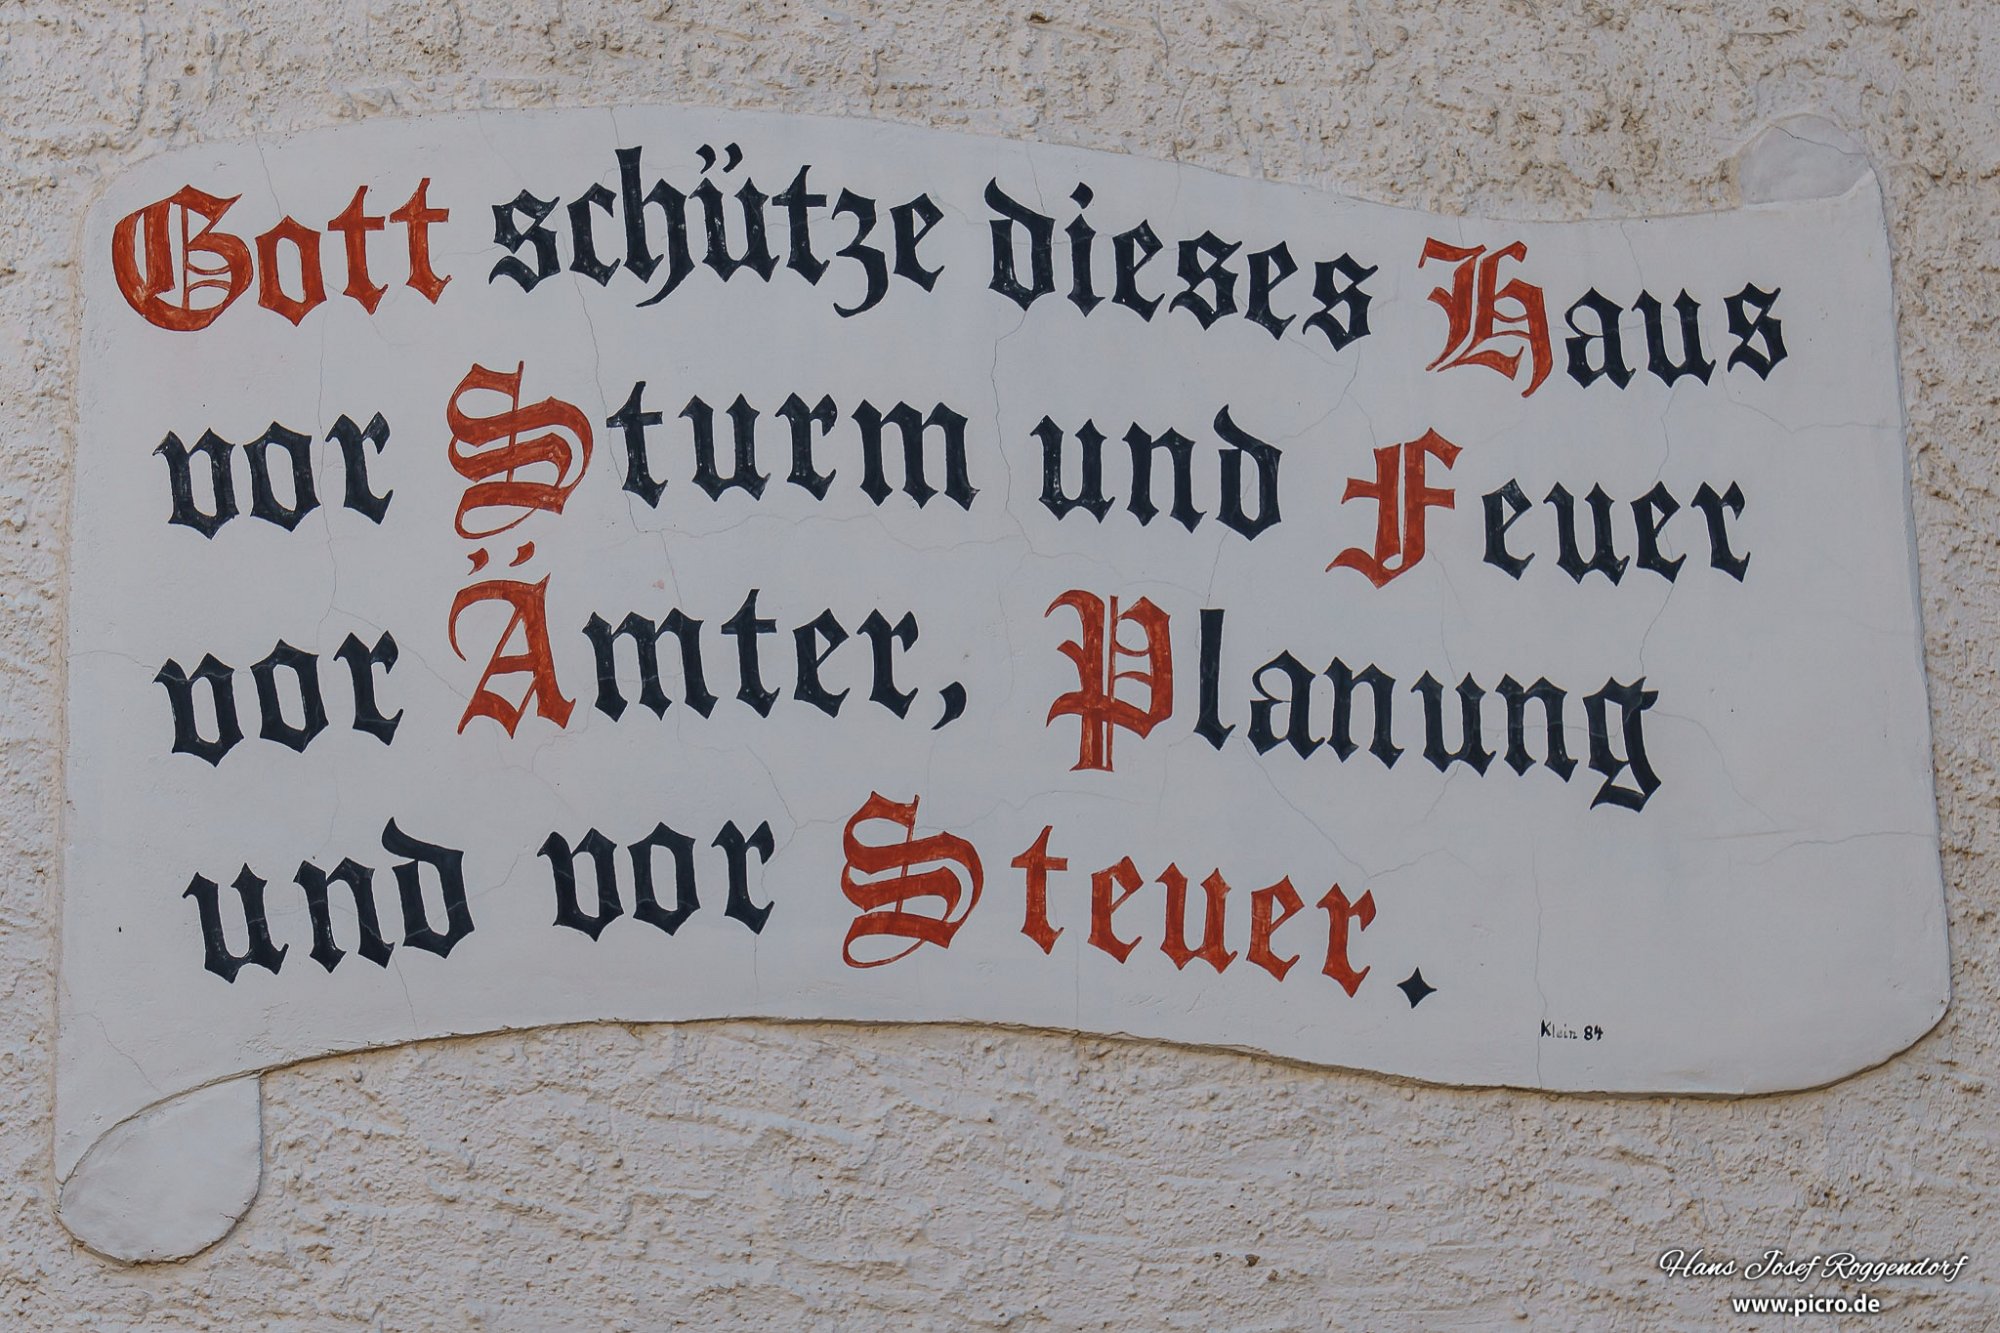 Gott schütze dieses Haus
vor Sturm und Feuer
vor Ämter, Planung
und vor Steuer.
Klein 84
Hans Josef Roggendorf
www.picro.de